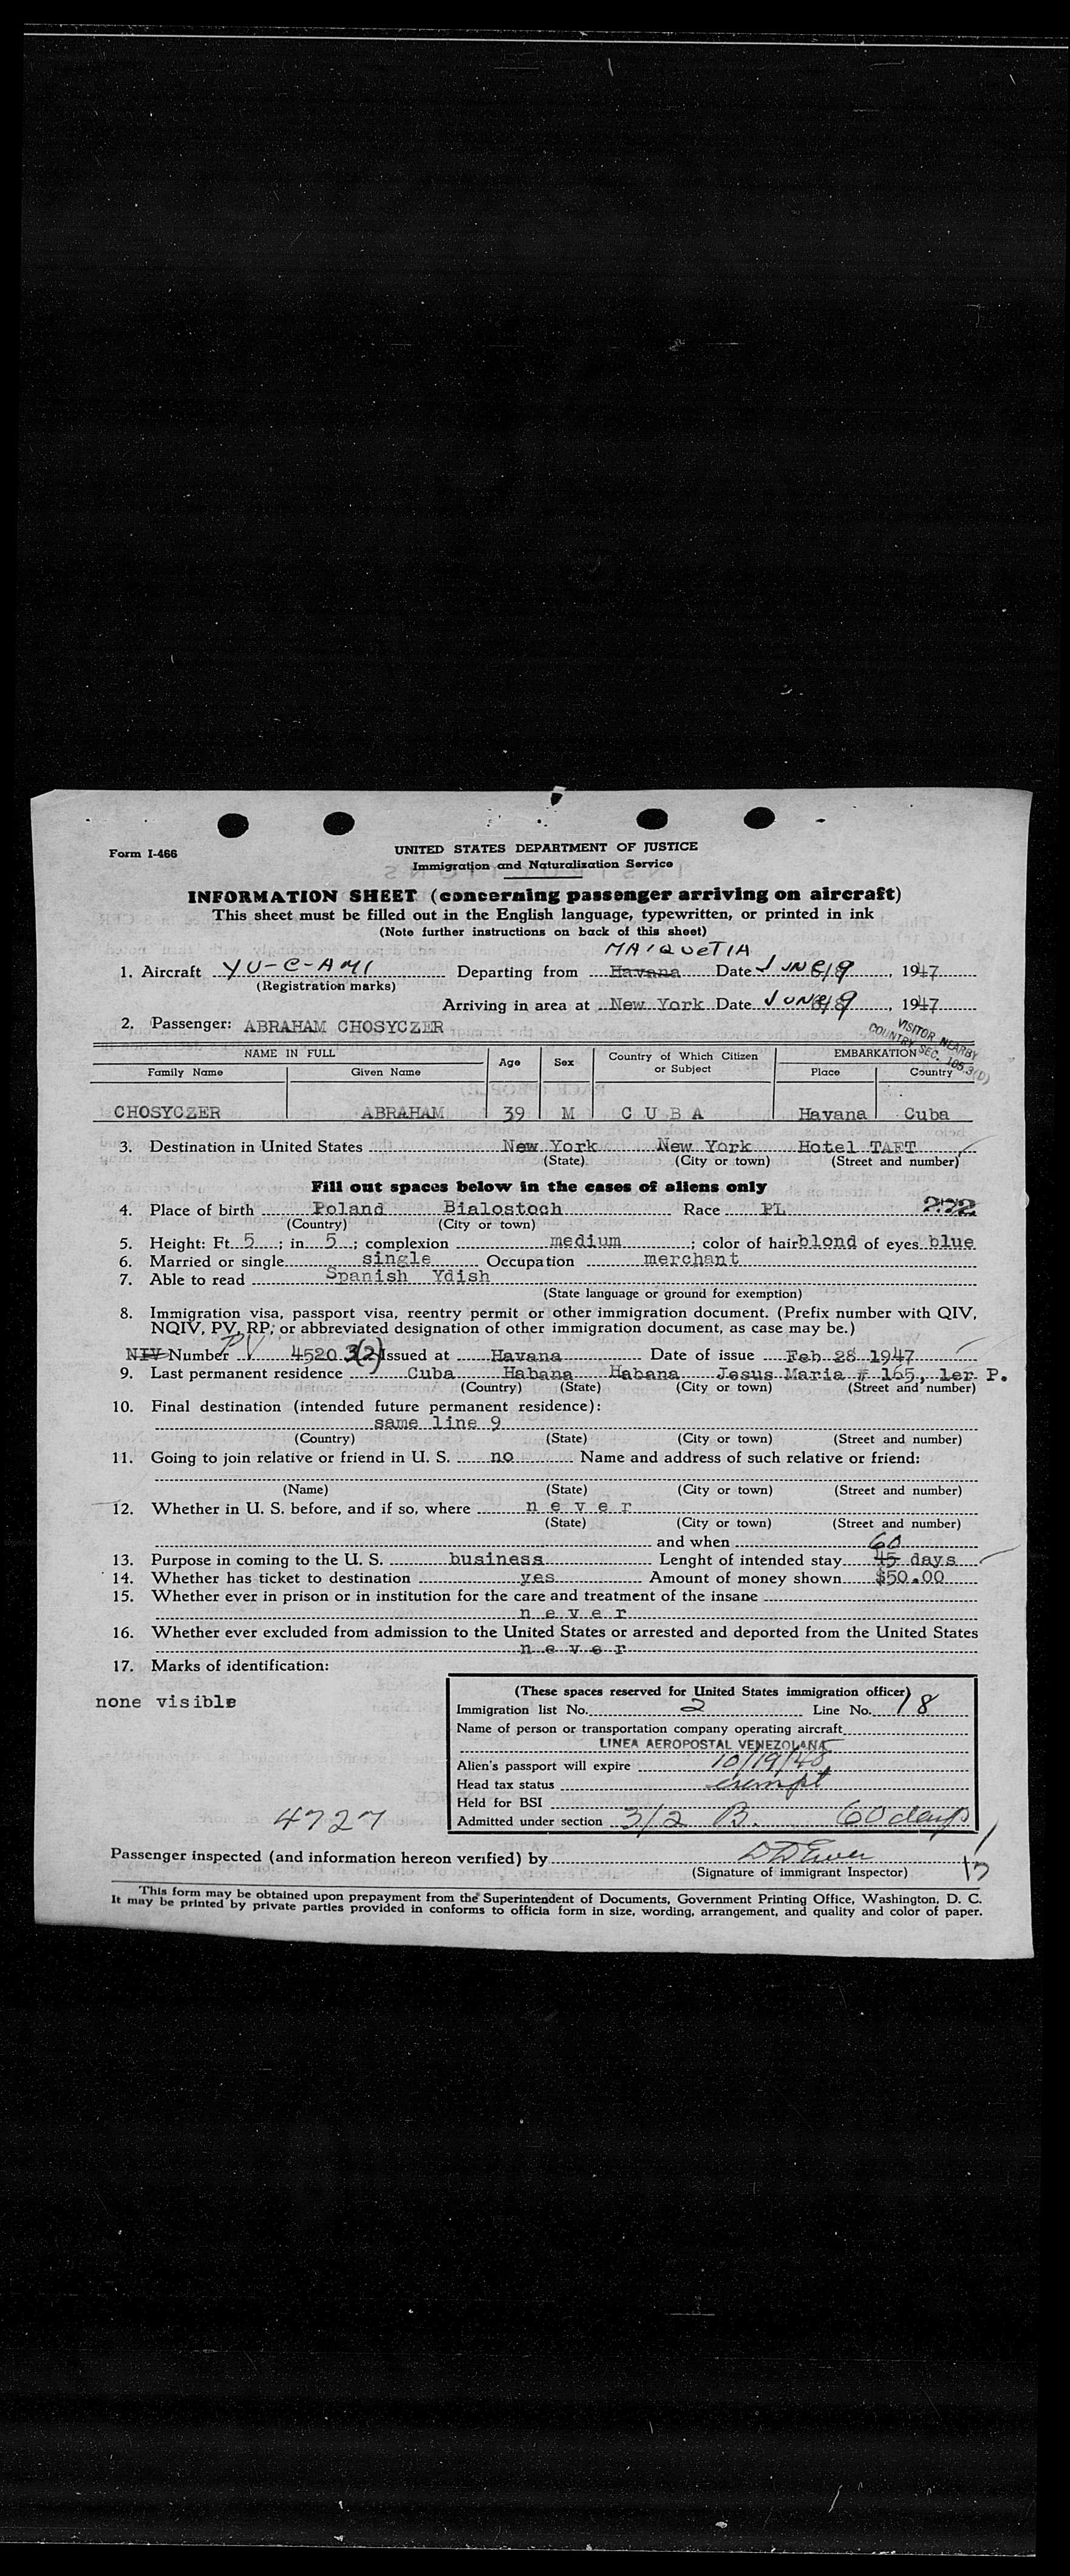 Form I-466
UNITED STATES DEPARTMENT OF JUSTICE
Immigration and Naturalization Service
INFORMATION SHEET (concerning passenger arriving on aircraft)
This sheet must be filled out in the English language, typewritten, or printed in ink
(Note further instructions on back of this sheet)
MAIQUETIA
1. Aircraft YU-C-AMI Departing from Havana Date JUNE/9, 1947
(Registration marks)
Arriving in area at New York Date JUNE/9, 1947
2. Passenger: ABRAHAM CHOSYCZER
VISITOR NEARBY
COUNTRY SEC. 105.3(D)
NAME IN FULL Age Sex Country of Which Citizen or Subject EMBARKATION
Family Name Given Name Place Country
CHOSYCZER ABRAHAM 39 M C U B A Havana Cuba
3. Destination in United States New York New York Hotel TAFT
(State) (City or town) (Street and number)
Fill out spaces below in the cases of aliens only
4. Place of birth Poland Bialostoch Race PL
(Country) (City or town)
5. Height: Ft. 5; in 5; complexion medium; color of hair blond of eyes blue
6. Married or single single Occupation merchant
7. Able to read Spanish Ydish
(State language or ground for exemption)
8. Immigration visa, passport visa, reentry permit or other immigration document. (Prefix number with QIV,
NQIV, PV, RP; or abbreviated designation of other immigration document, as case may be.)
PV
NIV Number 4520 3(2) Issued at Havana Date of issue Feb 28 1947
9. Last permanent residence Cuba Habana Habana Jesus Maria # 165, 1er P.
(Country) (State) (City or town) (Street and number)
10. Final destination (intended future permanent residence):
same line 9
(Country) (State) (City or town) (Street and number)
11. Going to join relative or friend in U. S. no Name and address of such relative or friend:
(Name) (State) (City or town) (Street and number)
12. Whether in U. S. before, and if so, where n e v e r
(State) (City or town) (Street and number)
and when
60
13. Purpose in coming to the U. S. business Lenght of intended stay 45 days
14. Whether has ticket to destination yes Amount of money shown $50.00
15. Whether ever in prison or in institution for the care and treatment of the insane
n e v e r
16. Whether ever excluded from admission to the United States or arrested and deported from the United States
n e v e r
17. Marks of identification:
none visible
(These spaces reserved for United States immigration officer)
Immigration list No. 2 Line No. 18
Name of person or transportation company operating aircraft
LINEA AEROPOSTAL VENEZOLANA
Alien's passport will expire 10/19/48
Head tax status exempt
Held for BSI
Admitted under section 3/2 B. 60 days
4727
Passenger inspected (and information hereon verified) by
(Signature of immigrant Inspector)
This form may be obtained upon prepayment from the Superintendent of Documents, Government Printing Office, Washington, D. C.
It may be printed by private parties provided in conforms to officia form in size, wording, arrangement, and quality and color of paper.